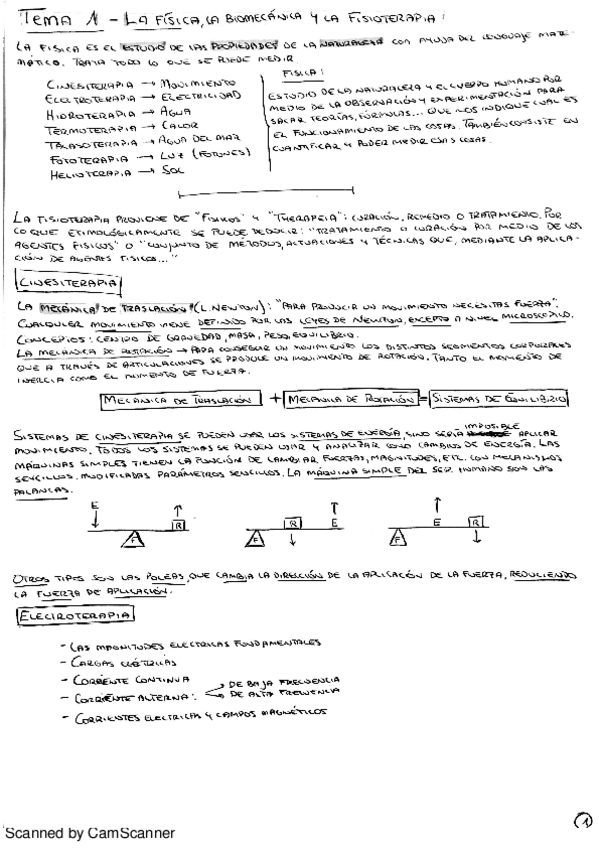 Tema 1 - La Física, la Biomecánica y la Fisioterapia:
La Fisica es el estudio de las propiedades de la naturaleza con ayuda del lenguaje mate-
mático. Trata todo lo que se puede medir.
Cinesiterapia → Movimiento
Electroterapia → Electricidad
Hidroterapia → Agua
Termoterapia → Calor
Talasoterapia → Agua del mar
Fototerapia → Luz (fotones)
Helioterapia → Sol
Física:
Estudio de la naturaleza y el cuerpo humano por
medio de la observación y experimentación para
sacar teorías, fórmulas... que nos indique cual es
el funcionamiento de las cosas. También consiste en
cuantificar y poder medir esas cosas.
La fisioterapia proviene de "Fisikos" y "Therapeia": curación, remedio o tratamiento. Por
lo que etimológicamente se puede deducir: "Tratamiento o curación por medio de los
agentes fisicos" o "conjunto de métodos, actuaciones y técnicas que, mediante la aplica-
ción de agentes fisicos..."
Cinesiterapia
La mecánica de traslación (I. Newton): "Para producir un movimiento necesitas fuerza".
Cualquier movimiento viene definido por las leyes de Newton, excepto a nivel microscópico.
Conceptos: centro de gravedad, masa, peso, equilibrio.
La mecanica de rotación → Para conseguir un movimiento los distintos segmentos corporales
que a través de articulaciones se produce un movimiento de rotación. Tanto el momento de
inercia como el momento de fuerza.
Mecanica de Traslación + Mecanica de Rotación = Sistemas de Equilibrio
Sistemas de cinesiterapia se pueden usar los sistemas de energía, sino sería imposible aplicar
movimiento. Todos los sistemas se pueden usar y analizar como cambios de energía. Las
máquinas simples tienen la función de cambiar fuerzas, magnitudes, etc. con mecanismos
sencillos. Modificadas parámetros sencillos. La máquina simple del ser humano son las
palancas.
E R F
F R E
F E R
Otros tipos son las poleas, que cambia la dirección de la aplicación de la fuerza, reduciendo
la fuerza de aplicación.
Electroterapia
- Las magnitudes electricas fundamentales
- Cargas eléctricas
- Corriente continua
- Corriente alterna: de baja frecuencia
de alta frecuencia
- Corrientes electricas y campos magnéticos
1
Scanned by CamScanner